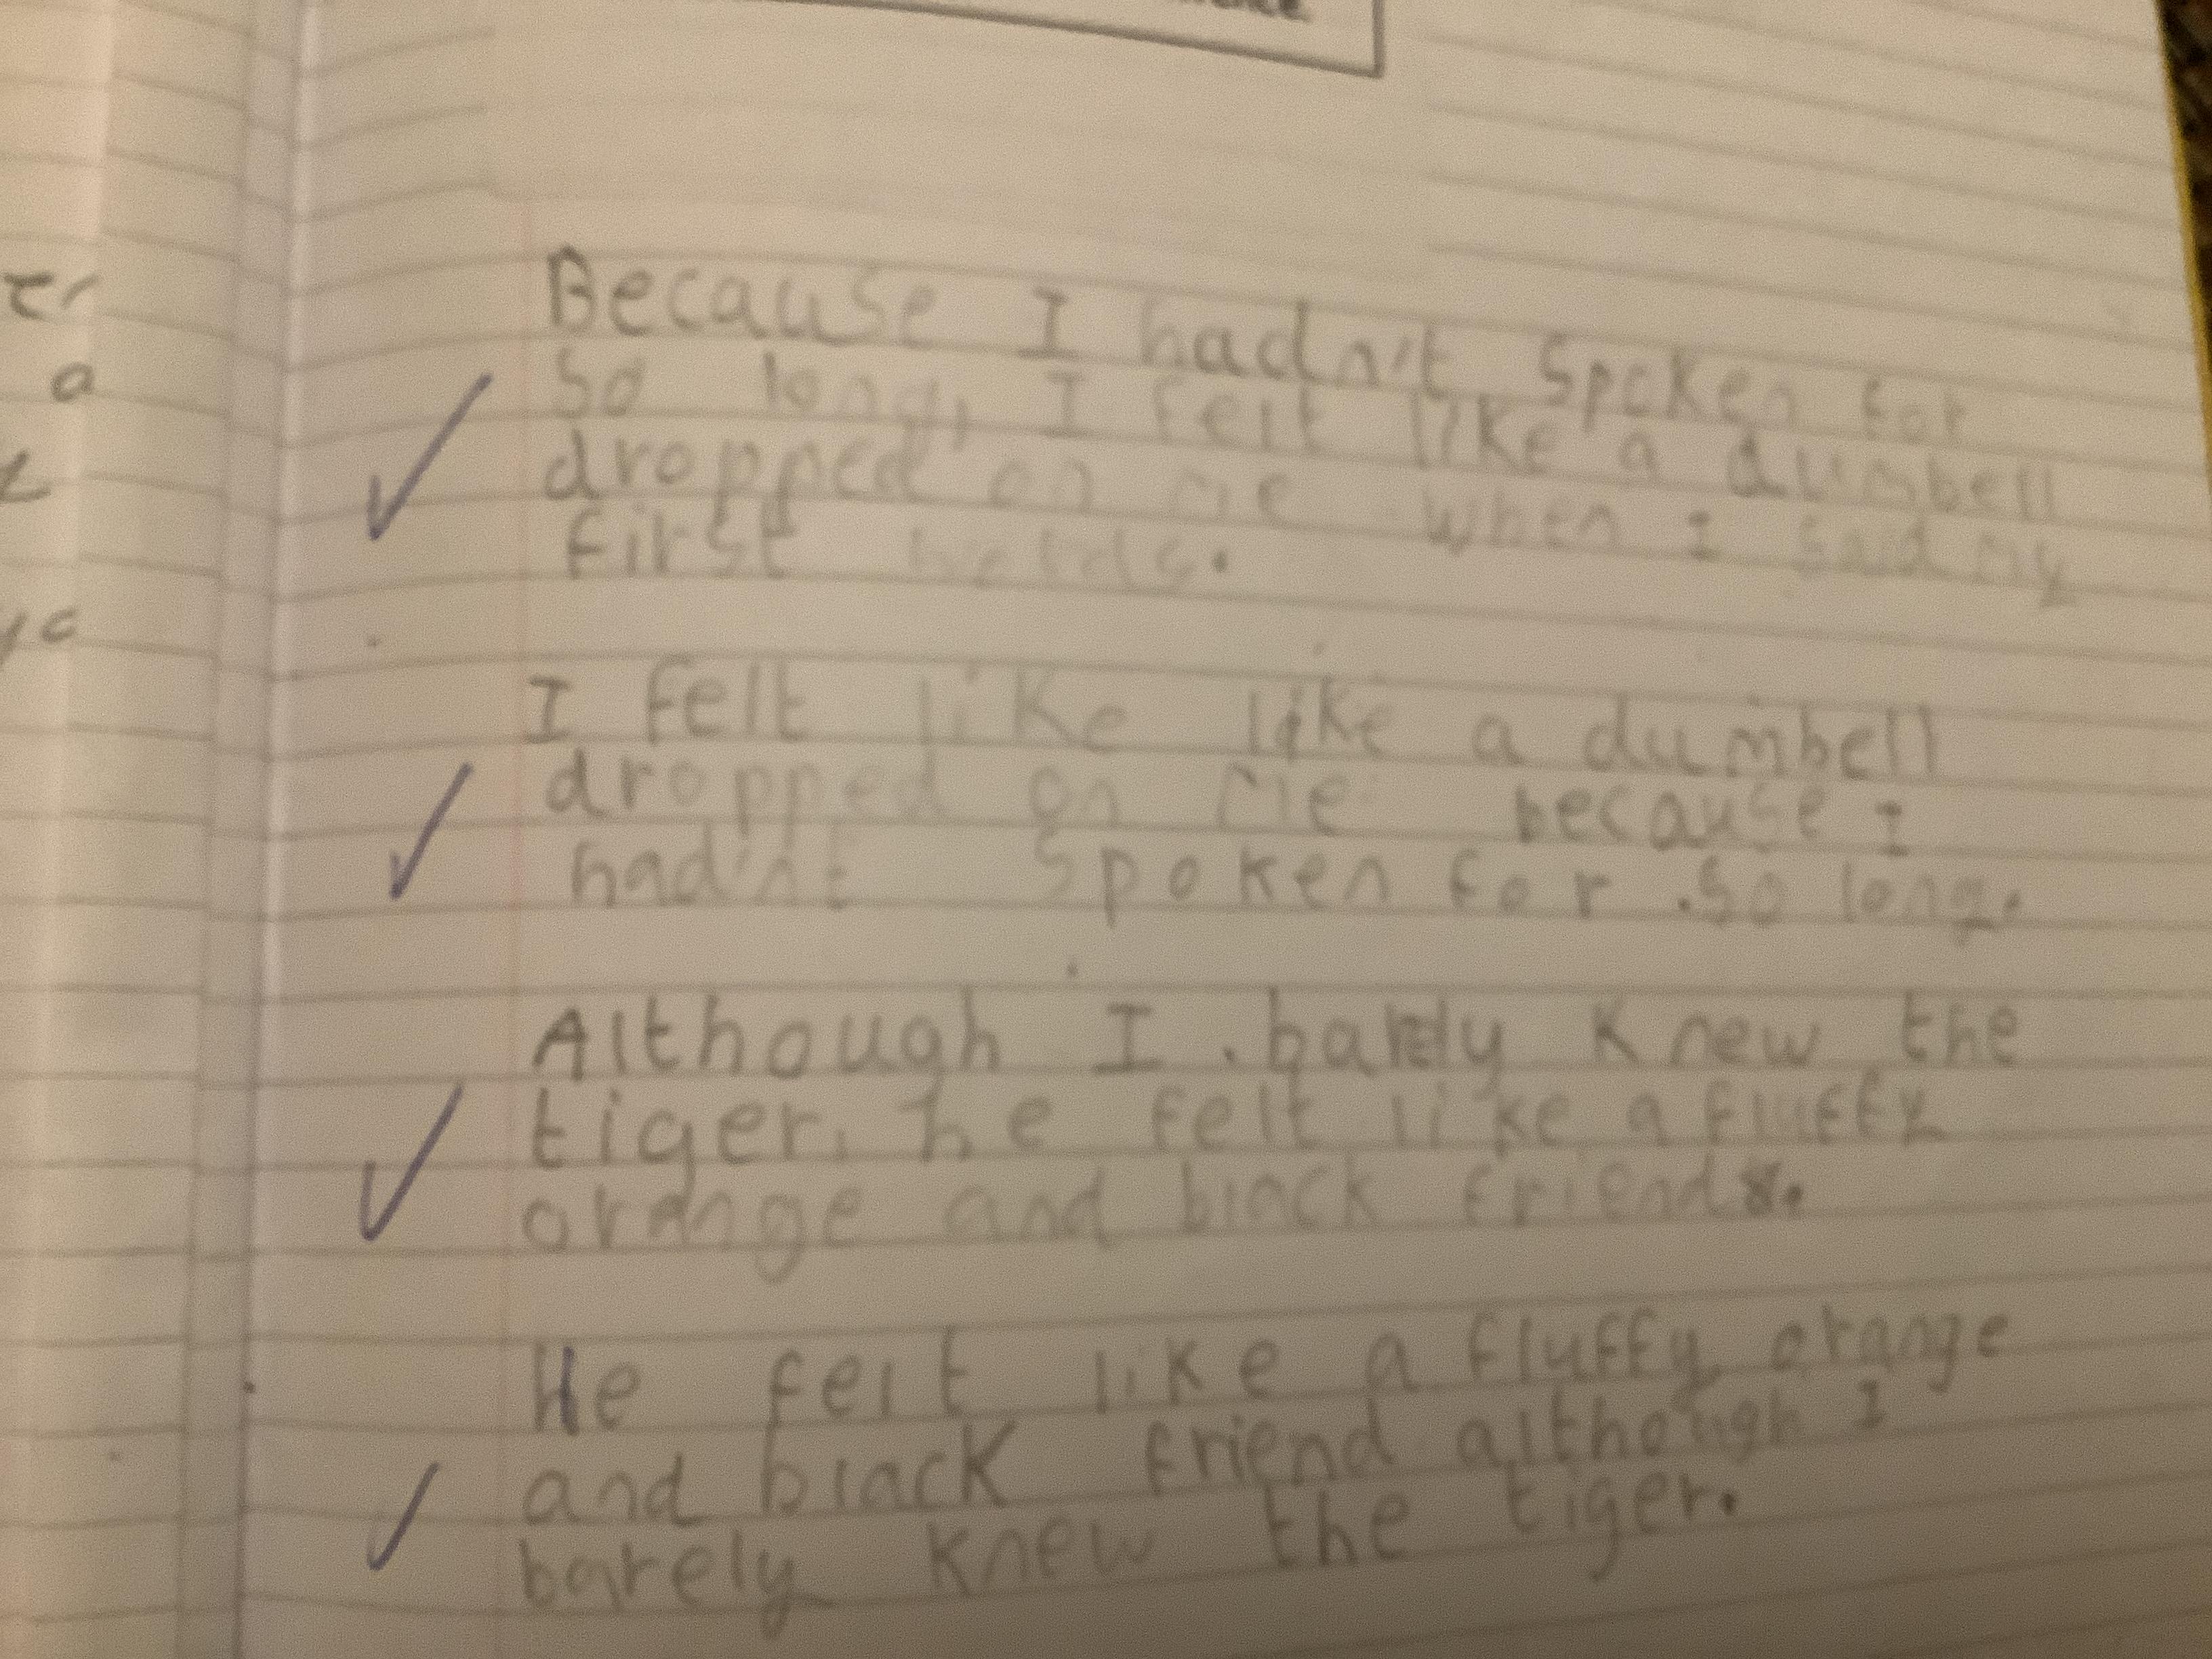 Because I hadn't spoken for
so long, I felt like a dumbell
dropped on me when I said my
first words.
I felt like like a dumbell
dropped on me because I
had'nt spoken for so long.
Although I barely knew the
tiger, he felt like a fluffy
orange and black friend.
He felt like a fluffy orange
and black friend although I
barely knew the tiger.